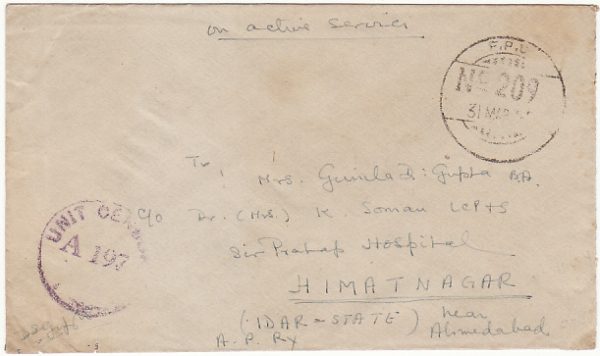 on active service
F.P.O
No 209
31 MAR
To
Mrs. Gupta BA.
c/o Dr. (Mrs.) K. Soman LCPS
Sir Pratap Hospital
HIMATNAGAR
(IDAR-STATE) near
A. P. Ry Ahmedabad
UNIT CENSOR
A 197